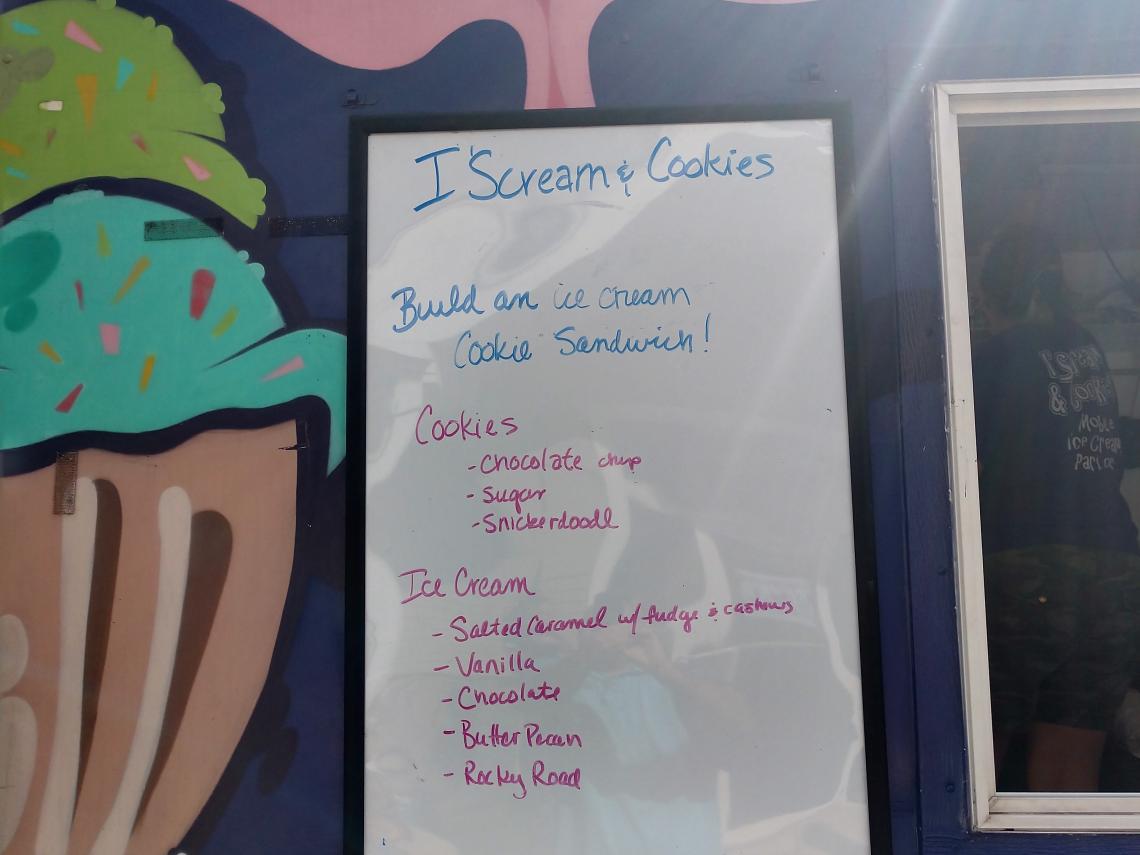 I Scream & Cookies
Build an ice cream
Cookie Sandwich!
Cookies
- Chocolate chip
- Sugar
- Snickerdoodl
Ice Cream
- Salted Caramel w/ fudge & cashews
- Vanilla
- Chocolate
- Butter Pecan
- Rocky Road
I Screa
& Cookie
Mobile
Ice Cream
Parlor